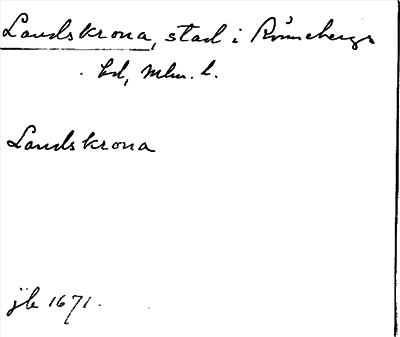 Landskrona, stad i Rönnebergs
hd, Mlm. l.
Landskrona
jb 1671.